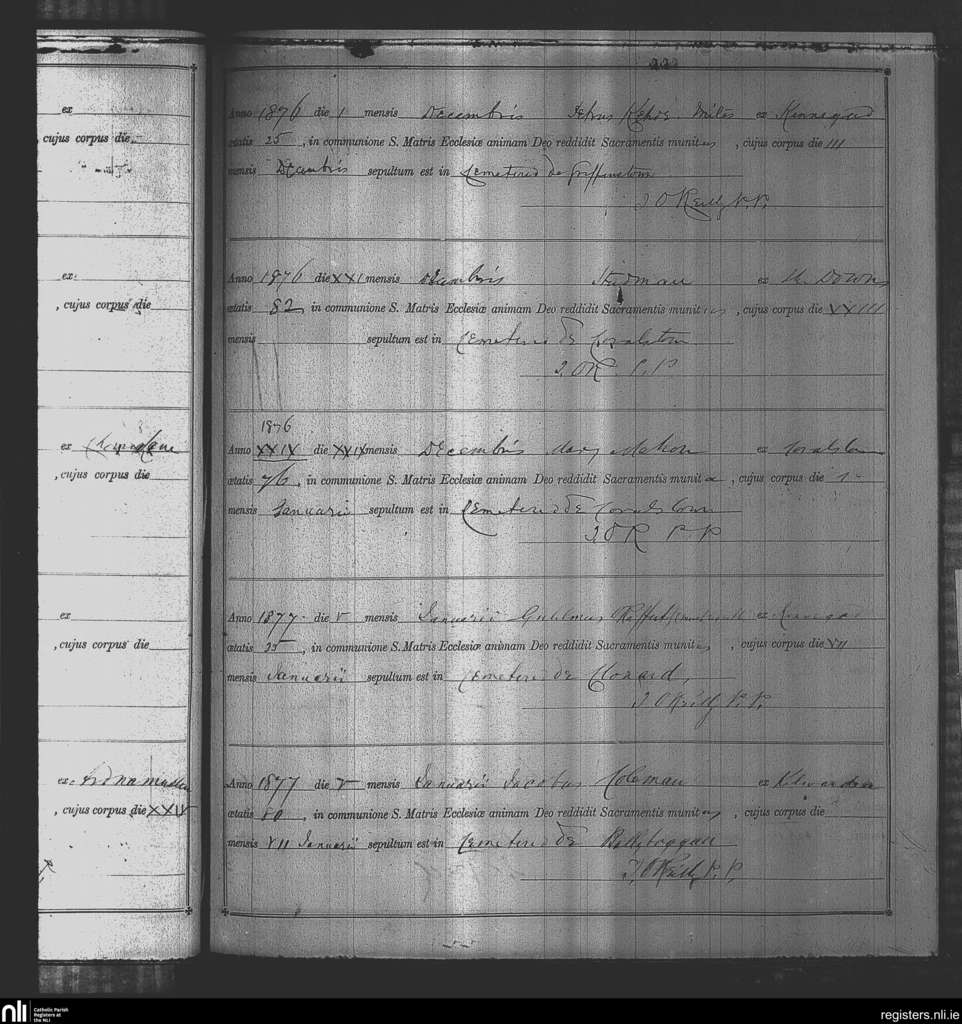 ex
, cujus corpus die
ex
, cujus corpus die
ex
, cujus corpus die
ex
, cujus corpus die
ex
, cujus corpus die XXIV
222
Anno 1876 die 1 mensis Decembris Petrus Kehoe Miles ex Kinnegad
ætatis 25, in communione S. Matris Ecclesiæ animam Deo reddidit Sacramentis munitus, cujus corpus die III
mensis Decembris sepultum est in Cemeterio de Griffinstown
J O Reilly P. P.
Anno 1876 die XXI mensis Decembris ex the Downs
ætatis 82, in communione S. Matris Ecclesiæ animam Deo reddidit Sacramentis munitus, cujus corpus die XXIII
mensis sepultum est in Cemeterio de Coralstown
J. OR P. P
1876
Anno XXIX die XXIX mensis Decembris Mary Mahon ex Coralstown
ætatis 76, in communione S. Matris Ecclesiæ animam Deo reddidit Sacramentis munita, cujus corpus die 1
mensis Januarii sepultum est in Cemeterio de Coralstown
J. O R P. P
Anno 1877 die V mensis Januarii Gulielmus ex
ætatis 25, in communione S. Matris Ecclesiæ animam Deo reddidit Sacramentis munitus, cujus corpus die VII
mensis Januarii sepultum est in Cemeterio de Clonard,
J O Reilly P. P.
Anno 1877 die V mensis Januarii Jacobus Coleman ex Kilwarden
ætatis 80, in communione S. Matris Ecclesiæ animam Deo reddidit Sacramentis munitus, cujus corpus die
mensis VII Januarii sepultum est in Cemeterio de Ballyboggan
J. O Reilly P. P.
nli Catholic Parish
Registers at
the NLI
registers.nli.ie